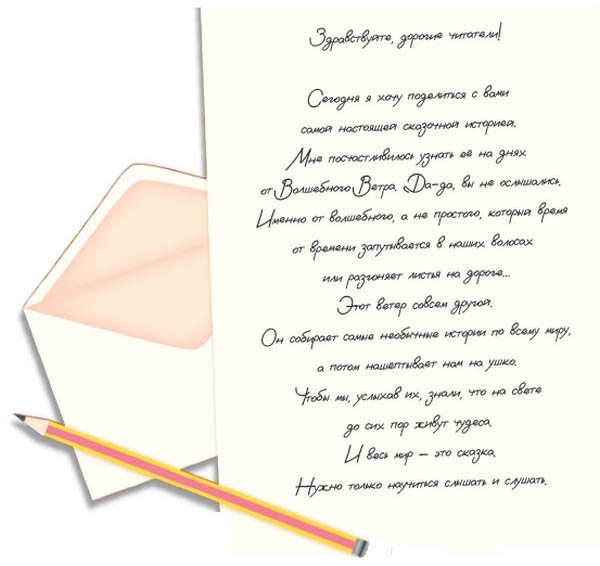 Здравствуйте, дорогие читатели!
Сегодня я хочу поделиться с вами
самой настоящей сказочной историей.
Мне посчастливилось узнать её на днях
от Волшебного Ветра. Да-да, вы не ослышались.
Именно от волшебного, а не простого, который время
от времени запутывается в наших волосах
или разгоняет листья на дороге...
Этот ветер совсем другой.
Он собирает самые необычные истории по всему миру,
а потом нашептывает нам на ушко.
Чтобы мы, услыхав их, знали, что на свете
до сих пор живут чудеса.
И весь мир – это сказка.
Нужно только научиться слышать и слушать.